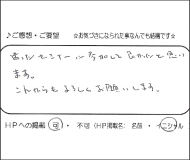 ♪ご感想・ご要望 ☆お気づきになられた事なんでも結構です☆
セミナーに参加して よかったと思い
ます。
これからもよろしくお願いします。
HPへの掲載 可 ・ 不可 (HP掲載名: 名前 ・ イニシャル